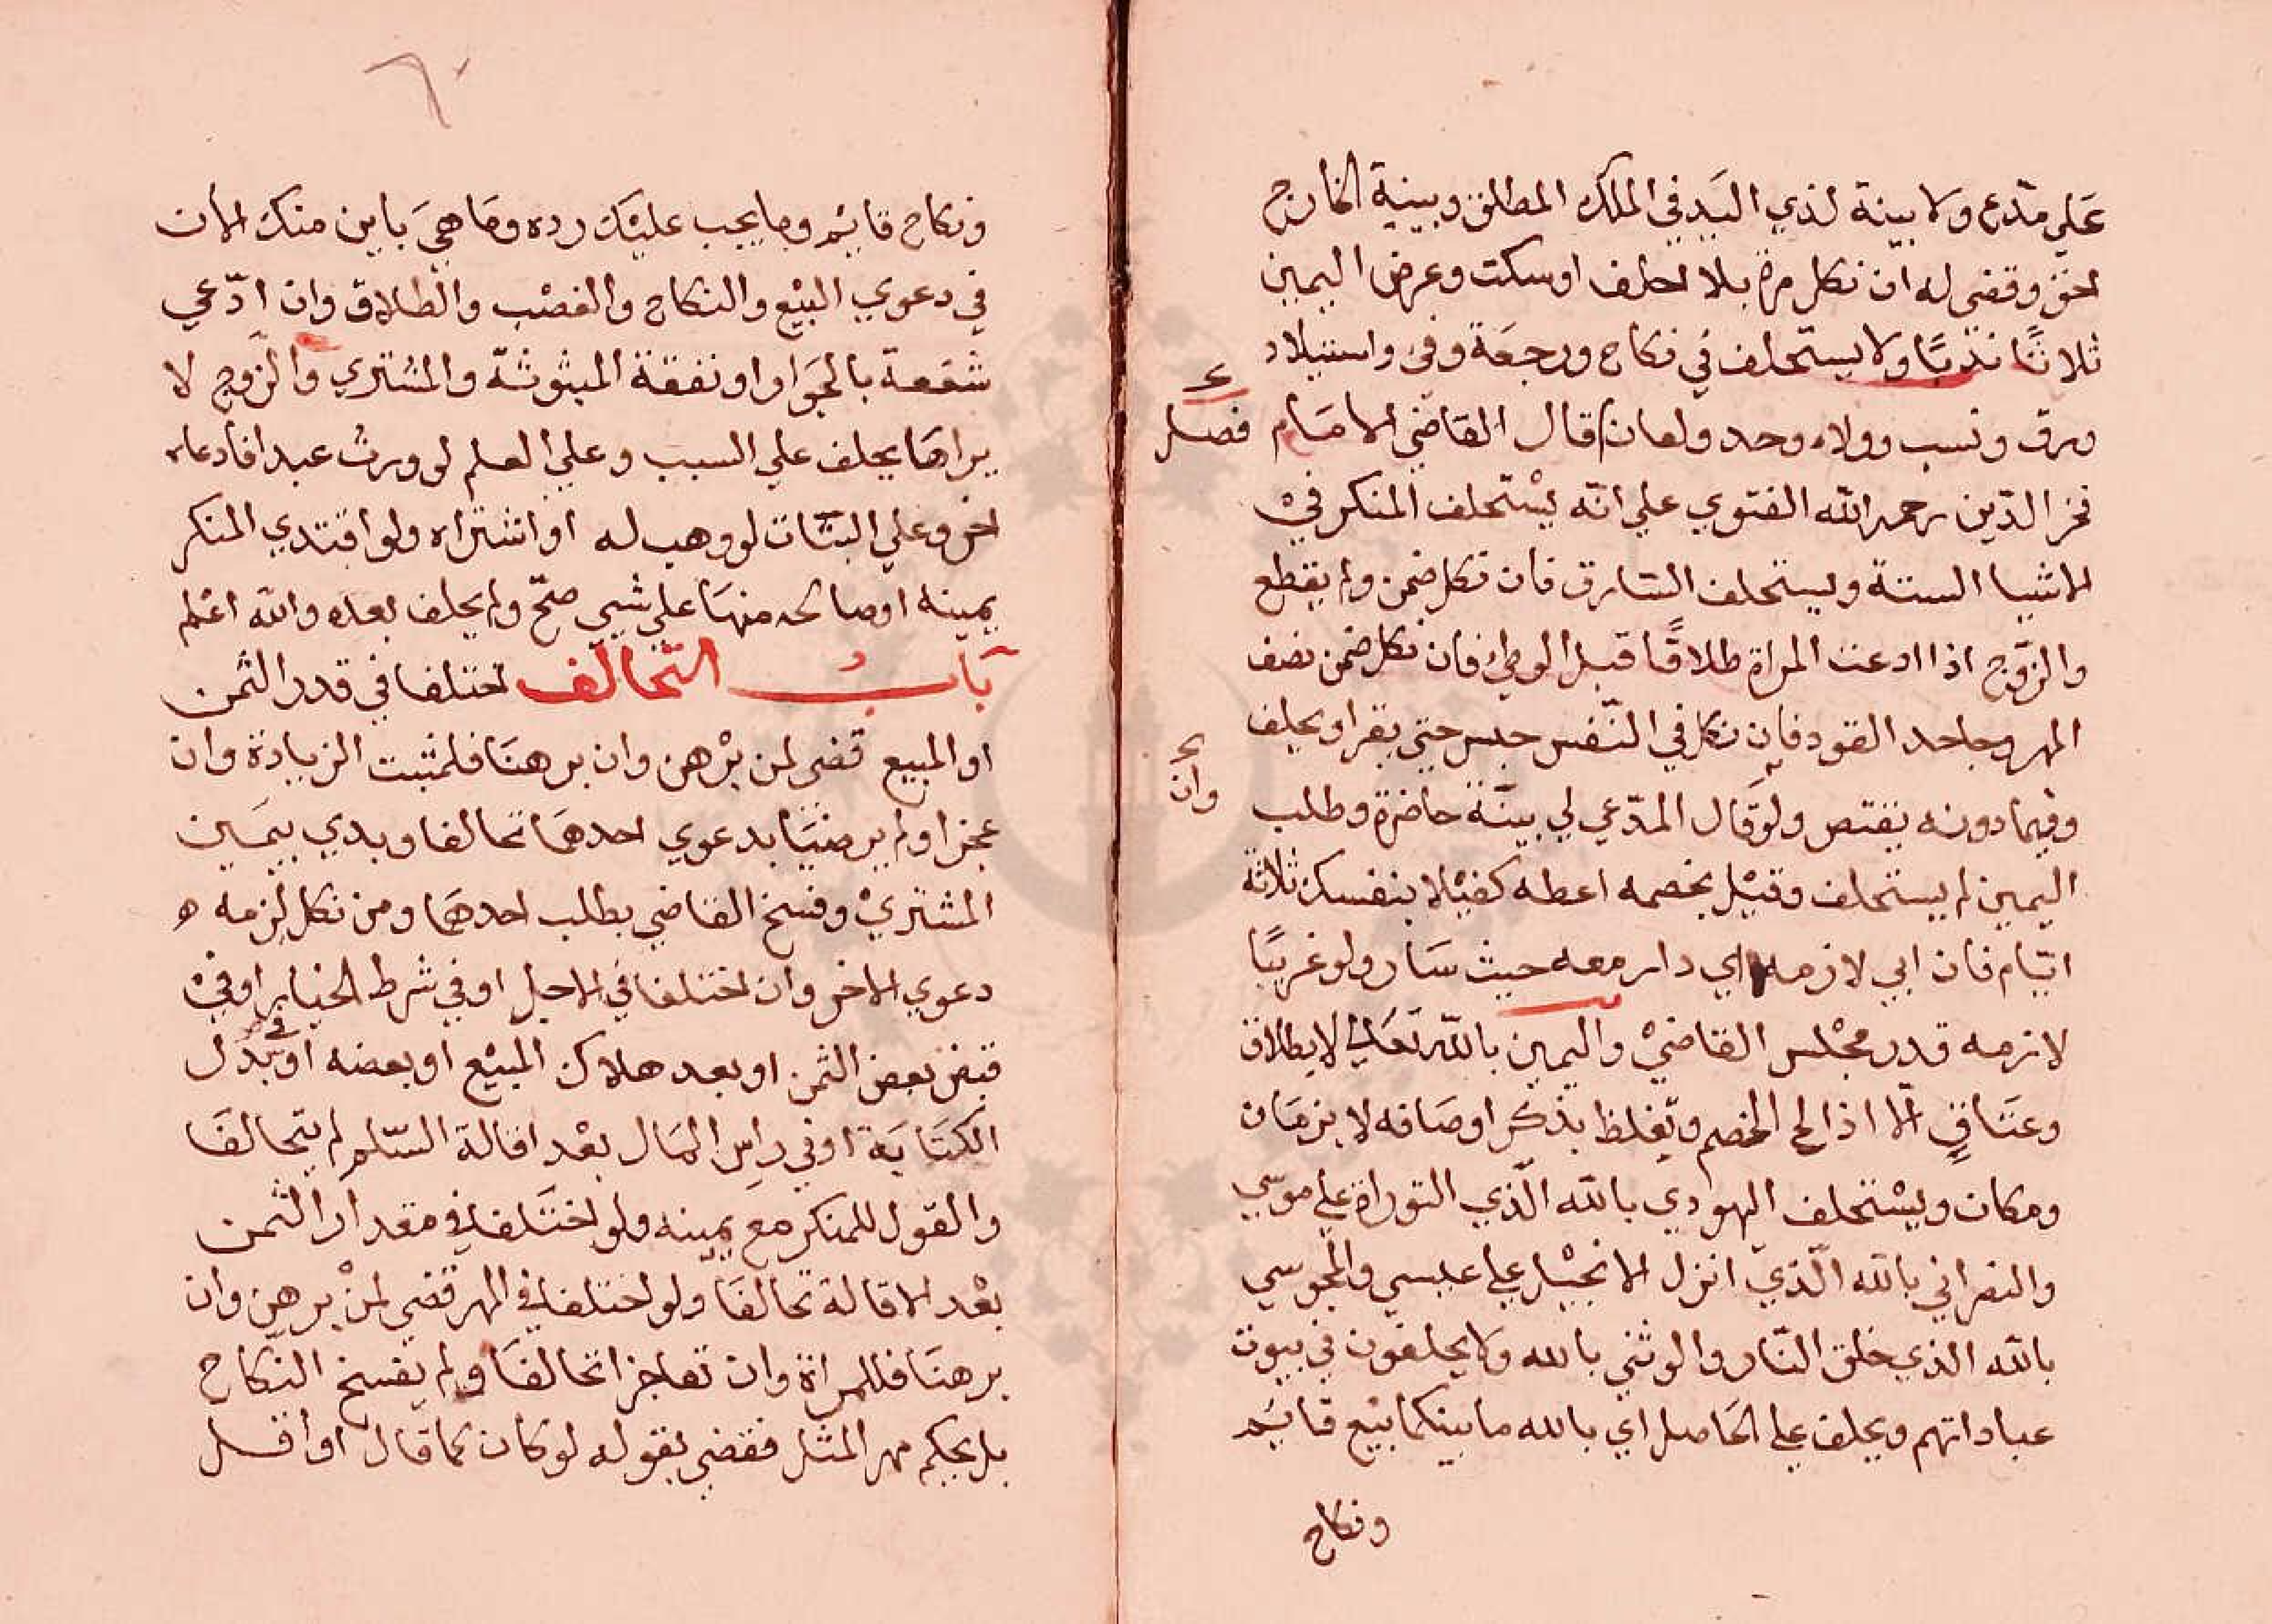 علي مدع ولا بينة لذي اليد في الملك المطلق وبينية الخارج
احق وقضى له ان نكل مرة بلا احلف او سكت وعرض اليمين
ثلاثًا ندبًا ولا يستحلف في نكاح ورجعة وفي واستيلاد
ورق ونسب وولاء وحد ولعان قال القاضي الامام
فصل
فخر الدين رحمه الله الفتوي علي انه يستحلف المنكر في
الاشيا الستة ويستحلف السارق فان نكل ضمن ولم يقطع
والزوج اذا ادعت المراة طلاقًا قبل الوطئ فان نكل ضمن نصف
المهر وجاحد القود فان نكل في النفس حبس حتي يقر او يحلف
وفيما دونه يقتص ولو قال المدعي لي بينة حاضرة وطلب
وان
اليمين لم يستحلف وقيل لخصمه اعطه كفيلا بنفسك ثلاثة
ايام فان ابي لازمه اي دار معه حيث سار ولو غريبًا
لازمه قدر مجلس القاضي واليمين بالله تعالي لا بطلاق
وعتاق الا اذا الح الخصم ويغلظ بذكر اوصافه لا بزمان
ومكان ويستحلف اليهودي بالله الذي التوراة علي موسي
والنصراني بالله الذي انزل الانجيل علي عيسي والمجوسي
بالله الذي خلق النار والوثني بالله ولا يحلفون في بيوت
عباداتهم ويحلف علي الحاصل اي بالله ما بينكما بيع قايم
ونكاح
٦٠
ونكاح قايم وما يجب عليك رده وما هي باين منك الان
في دعوي البيع والنكاح والغصب والطلاق وان ادعي
شفعة بالجوار او نفقة المبثوثة والمشتري والزوج لا
يراها يحلف علي السبب وعلي العلم لو ورث عبدا فادعاه
اخر وعلي البتات لو وهب له او اشتراه ولو افتدي المنكر
يمينه او صالحه منها علي شيي صح ولم يحلف بعده والله اعلم
باب التحالف اختلفا في قدر الثمن
او المبيع قضى لمن برهن وان برهنا فلمثبت الزيادة وان
عجزا ولم يرضيا بدعوي احدهما تحالفا وبدي بيمين
المشتري وفسخ القاضي بطلب احدهما ومن نكل لزمه
دعوي الاخر وان اختلفا في الاجل او في شرط الخيار او في
قبض بعض الثمن او بعد هلاك المبيع او بعضه او في بدل
الكتابة او في راس المال بعد اقالة السلم لم يتحالفا
والقول للمنكر مع يمينه ولو اختلفا في مقدار الثمن
بعد الاقالة تحالفا ولو اختلفا في المهر قضي لمن برهن وان
برهنا فللمراة وان تعاجزا تحالفا ولم يفسخ النكاح
بل يحكم مهر المثل فقضي بقوله لو كان كما قال او اقل